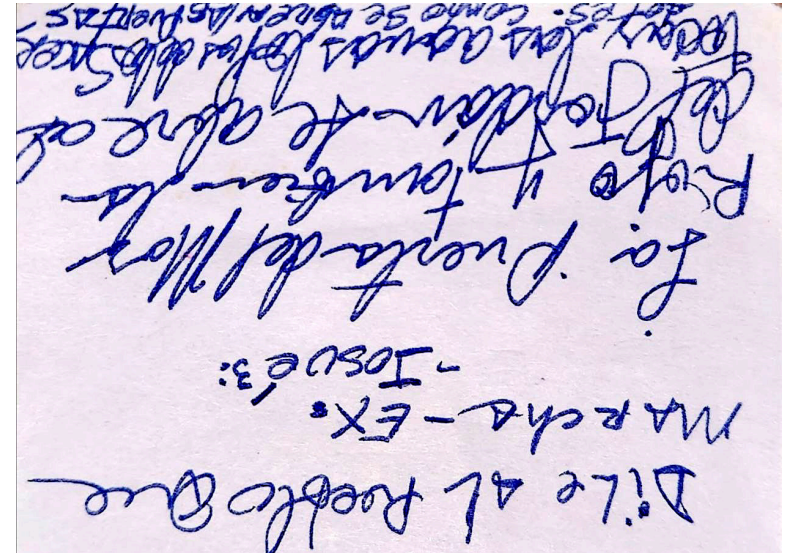 Dile al Pueblo Que
Marcha - EX.
- Josué 3:
La Puerta del Mar
Rojo y tambien la
del Jordán se abre al
tocar las aguas de los Sacer
dotes. como se abren las puertas